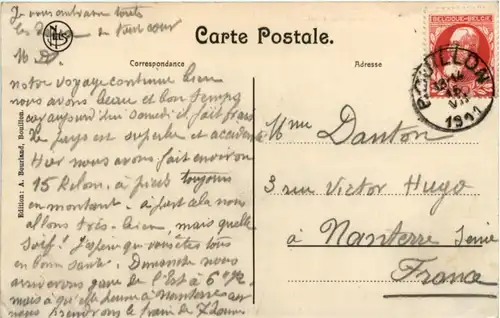 Je vous embrasse toutes
les de tout cœur
M D.
NELS
Carte Postale.
Correspondance
Adresse
BELGIQUE-BELGIË
BOUILLON
15
VII
1911
notre voyage continue bien
nous avons beau et bon temps
car aujourd'hui samedi il fait frais
le pays est superbe et accidenté
Hier nous avons fait environ
15 Kilom. à pieds toujours
en montant. à part cela nous
allons très-bien, mais quelle
soif! J'espère que vous êtes tous
en bonne santé. Dimanche nous
arriverons gare de l'Est à 6h½
mais à quelle heure à Nanterre car
nous prendrons le train de 7 heures
Mme Danton
3 rue Victor Hugo
à Nanterre Seine
France
Edition: A. Bourland, Bouillon.